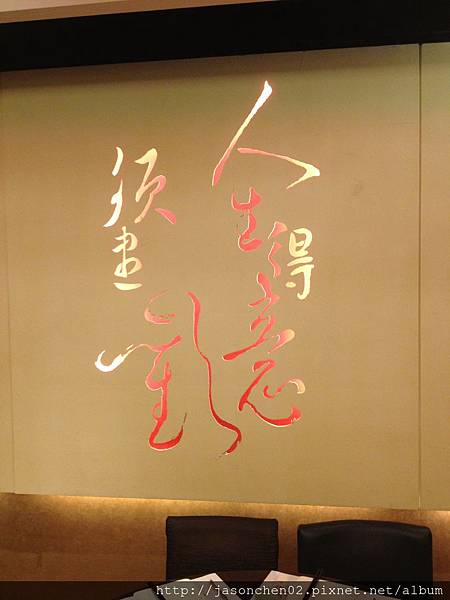 人生得意
須盡歡
http://jasonchen02.pixnet.net/album